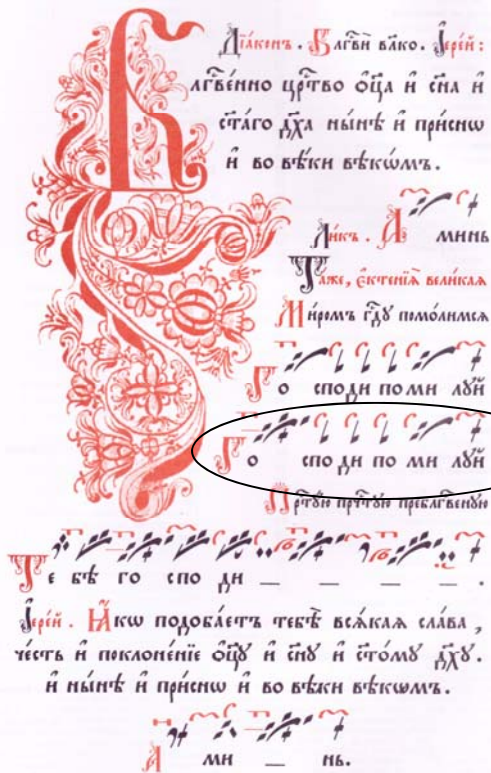 Дїа́конъ . Блгⷭ҇ви́ влⷣко . Їере́й :
Бл҃гве́нно црⷭ҇тво ѻ҆ц҃а и҆ сн҃а и҆
ст҃а́гѡ дх҃а ны́нѣ и҆ при́снѡ
и҆ во вѣ́ки вѣкѡ́мъ .
Ли́къ . А минь
Та́же , є҆ктенїѧ̀ вели́каѧ
Ми́ромъ гдⷭ҇у помо́лимсѧ
Го споди по ми луй
Го споди по ми луй
Прⷭ҇тую пречⷭ҇тую пребл҃гве́ную
Те бѣ го спо ди — — — — .
Їере́й . Ꙗ҆́кѡ подоба́етъ тебѣ̀ всѧ́каѧ сла́ва ,
че́сть и҆ поклоне́нїе ѻ҆ц҃ꙋ̀ и҆ сн҃ꙋ и҆ ст҃о́мꙋ дх҃ꙋ .
и҆ ны́нѣ и҆ при́снѡ и҆ во вѣ́ки вѣкѡмъ .
А ми — нь .